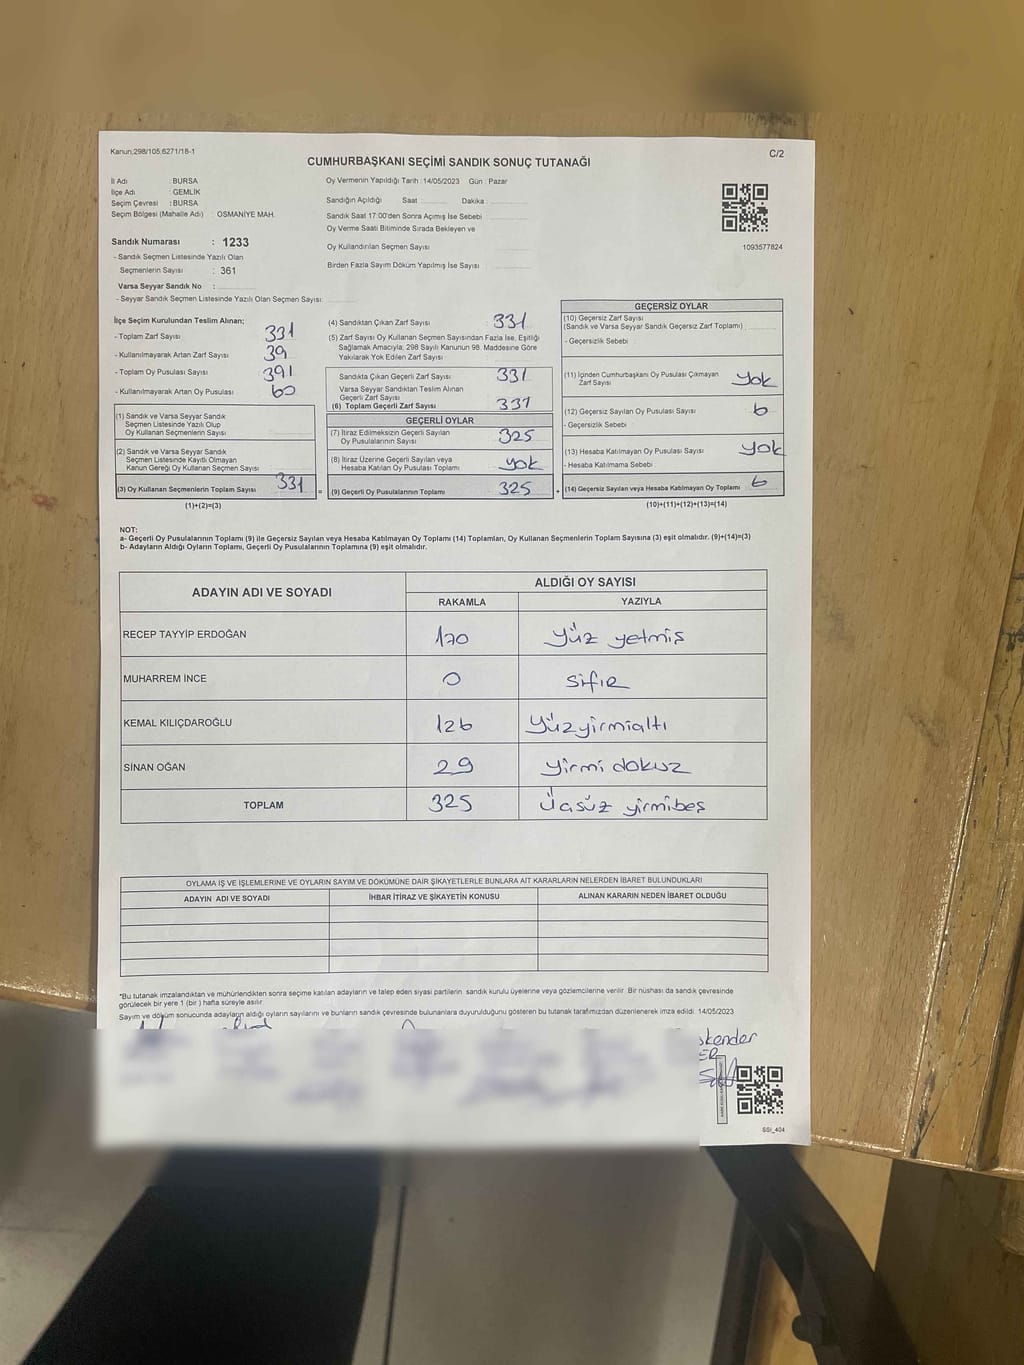 Kanun,298/105 6271/18-1
C/2
CUMHURBAŞKANI SEÇİMİ SANDIK SONUÇ TUTANAĞI
İl Adı : BURSA
İlçe Adı : GEMLİK
Seçim Çevresi : BURSA
Seçim Bölgesi (Mahalle Adı) : OSMANİYE MAH.
Sandık Numarası : 1233
- Sandık Seçmen Listesinde Yazılı Olan
Seçmenlerin Sayısı : 361
Varsa Seyyar Sandık No :
- Seyyar Sandık Seçmen Listesinde Yazılı Olan Seçmen Sayısı:
Oy Vermenin Yapıldığı Tarih : 14/05/2023 Gün : Pazar
Sandığın Açıldığı Saat Dakika :
Sandık Saat 17:00'den Sonra Açımış İse Sebebi
Oy Verme Saati Bitiminde Sırada Bekleyen ve
Oy Kullandırılan Seçmen Sayısı
Birden Fazla Sayım Döküm Yapılmış İse Sayısı
1093577824
İlçe Seçim Kurulundan Teslim Alınan;
- Toplam Zarf Sayısı 331
- Kullanılmayarak Artan Zarf Sayısı 39
- Toplam Oy Pusulası Sayısı 391
- Kullanılmayarak Artan Oy Pusulası 60
(1) Sandık ve Varsa Seyyar Sandık
Seçmen Listesinde Yazılı Olup
Oy Kullanan Seçmenlerin Sayısı
(2) Sandık ve Varsa Seyyar Sandık
Seçmen Listesinde Kayıtlı Olmayan
Kanun Gereği Oy Kullanan Seçmen Sayısı
(3) Oy Kullanan Seçmenlerin Toplam Sayısı 331
(1)+(2)=(3)
=
(4) Sandıktan Çıkan Zarf Sayısı : 331
(5) Zarf Sayısı Oy Kullanan Seçmen Sayısından Fazla İse, Eşitliği
Sağlamak Amacıyla; 298 Sayılı Kanunun 98. Maddesine Göre
Yakılarak Yok Edilen Zarf Sayısı
Sandıkta Çıkan Geçerli Zarf Sayısı 331
Varsa Seyyar Sandıktan Teslim Alınan
Geçerli Zarf Sayısı
(6) Toplam Geçerli Zarf Sayısı 331
GEÇERLİ OYLAR
(7) İtiraz Edilmeksizin Geçerli Sayılan
Oy Pusulalarının Sayısı 325
(8) İtiraz Üzerine Geçerli Sayılan veya
Hesaba Katılan Oy Pusulası Toplamı yok
(9) Geçerli Oy Pusulalarının Toplamı 325
+
GEÇERSİZ OYLAR
(10) Geçersiz Zarf Sayısı
(Sandık ve Varsa Seyyar Sandık Geçersiz Zarf Toplamı)
- Geçersizlik Sebebi :
(11) İçinden Cumhurbaşkanı Oy Pusulası Çıkmayan
Zarf Sayısı yok
(12) Geçersiz Sayılan Oy Pusulası Sayısı 6
- Geçersizlik Sebebi
(13) Hesaba Katılmayan Oy Pusulası Sayısı yok
- Hesaba Katılmama Sebebi
(14) Geçersiz Sayılan veya Hesaba Katılmayan Oy Toplamı 6
(10)+(11)+(12)+(13)=(14)
NOT:
a- Geçerli Oy Pusulasının Toplamı (9) ile Geçersiz Sayılan veya Hesaba Katılmayan Oy Toplamı (14) Toplamları, Oy Kullanan Seçmenlerin Toplam Sayısına (3) eşit olmalıdır. (9)+(14)=(3)
b- Adayların Aldığı Oyların Toplamı, Geçerli Oy Pusulalarının Toplamına (9) eşit olmalıdır.
ADAYIN ADI VE SOYADI
ALDIĞI OY SAYISI
RAKAMLA YAZIYLA
RECEP TAYYİP ERDOĞAN 170 yüz yetmiş
MUHARREM İNCE 0 sıfır
KEMAL KILIÇDAROĞLU 126 yüzyirmialtı
SİNAN OĞAN 29 yirmi dokuz
TOPLAM 325 üçyüz yirmibeş
OYLAMA İŞ VE İŞLEMLERİNE VE OYLARIN SAYIM VE DÖKÜMÜNE DAİR ŞİKAYETLERLE BUNLARA AİT KARARLARIN NELERDEN İBARET BULUNDUKLARI
ADAYIN ADI VE SOYADI İHBAR İTİRAZ VE ŞİKAYETİN KONUSU ALINAN KARARIN NEDEN İBARET OLDUĞU
*Bu tutanak imzalandıktan ve mühürlendikten sonra seçime katılan adayların ve talep eden siyasi partilerin sandık kurulu üyelerine veya gözlemcilerine verilir. Bir nüshası da sandık çevresinde
görülecek bir yere 1 (bir) hafta süreyle asılır.
Sayım ve döküm sonucunda adayların aldığı oyların sayılarını ve bunların sandık çevresinde bulunanlara duyurulduğunu gösteren bu tutanak tarafımızdan düzenlenerek imza edildi. 14/05/2023
skender
ER
SSİ_404